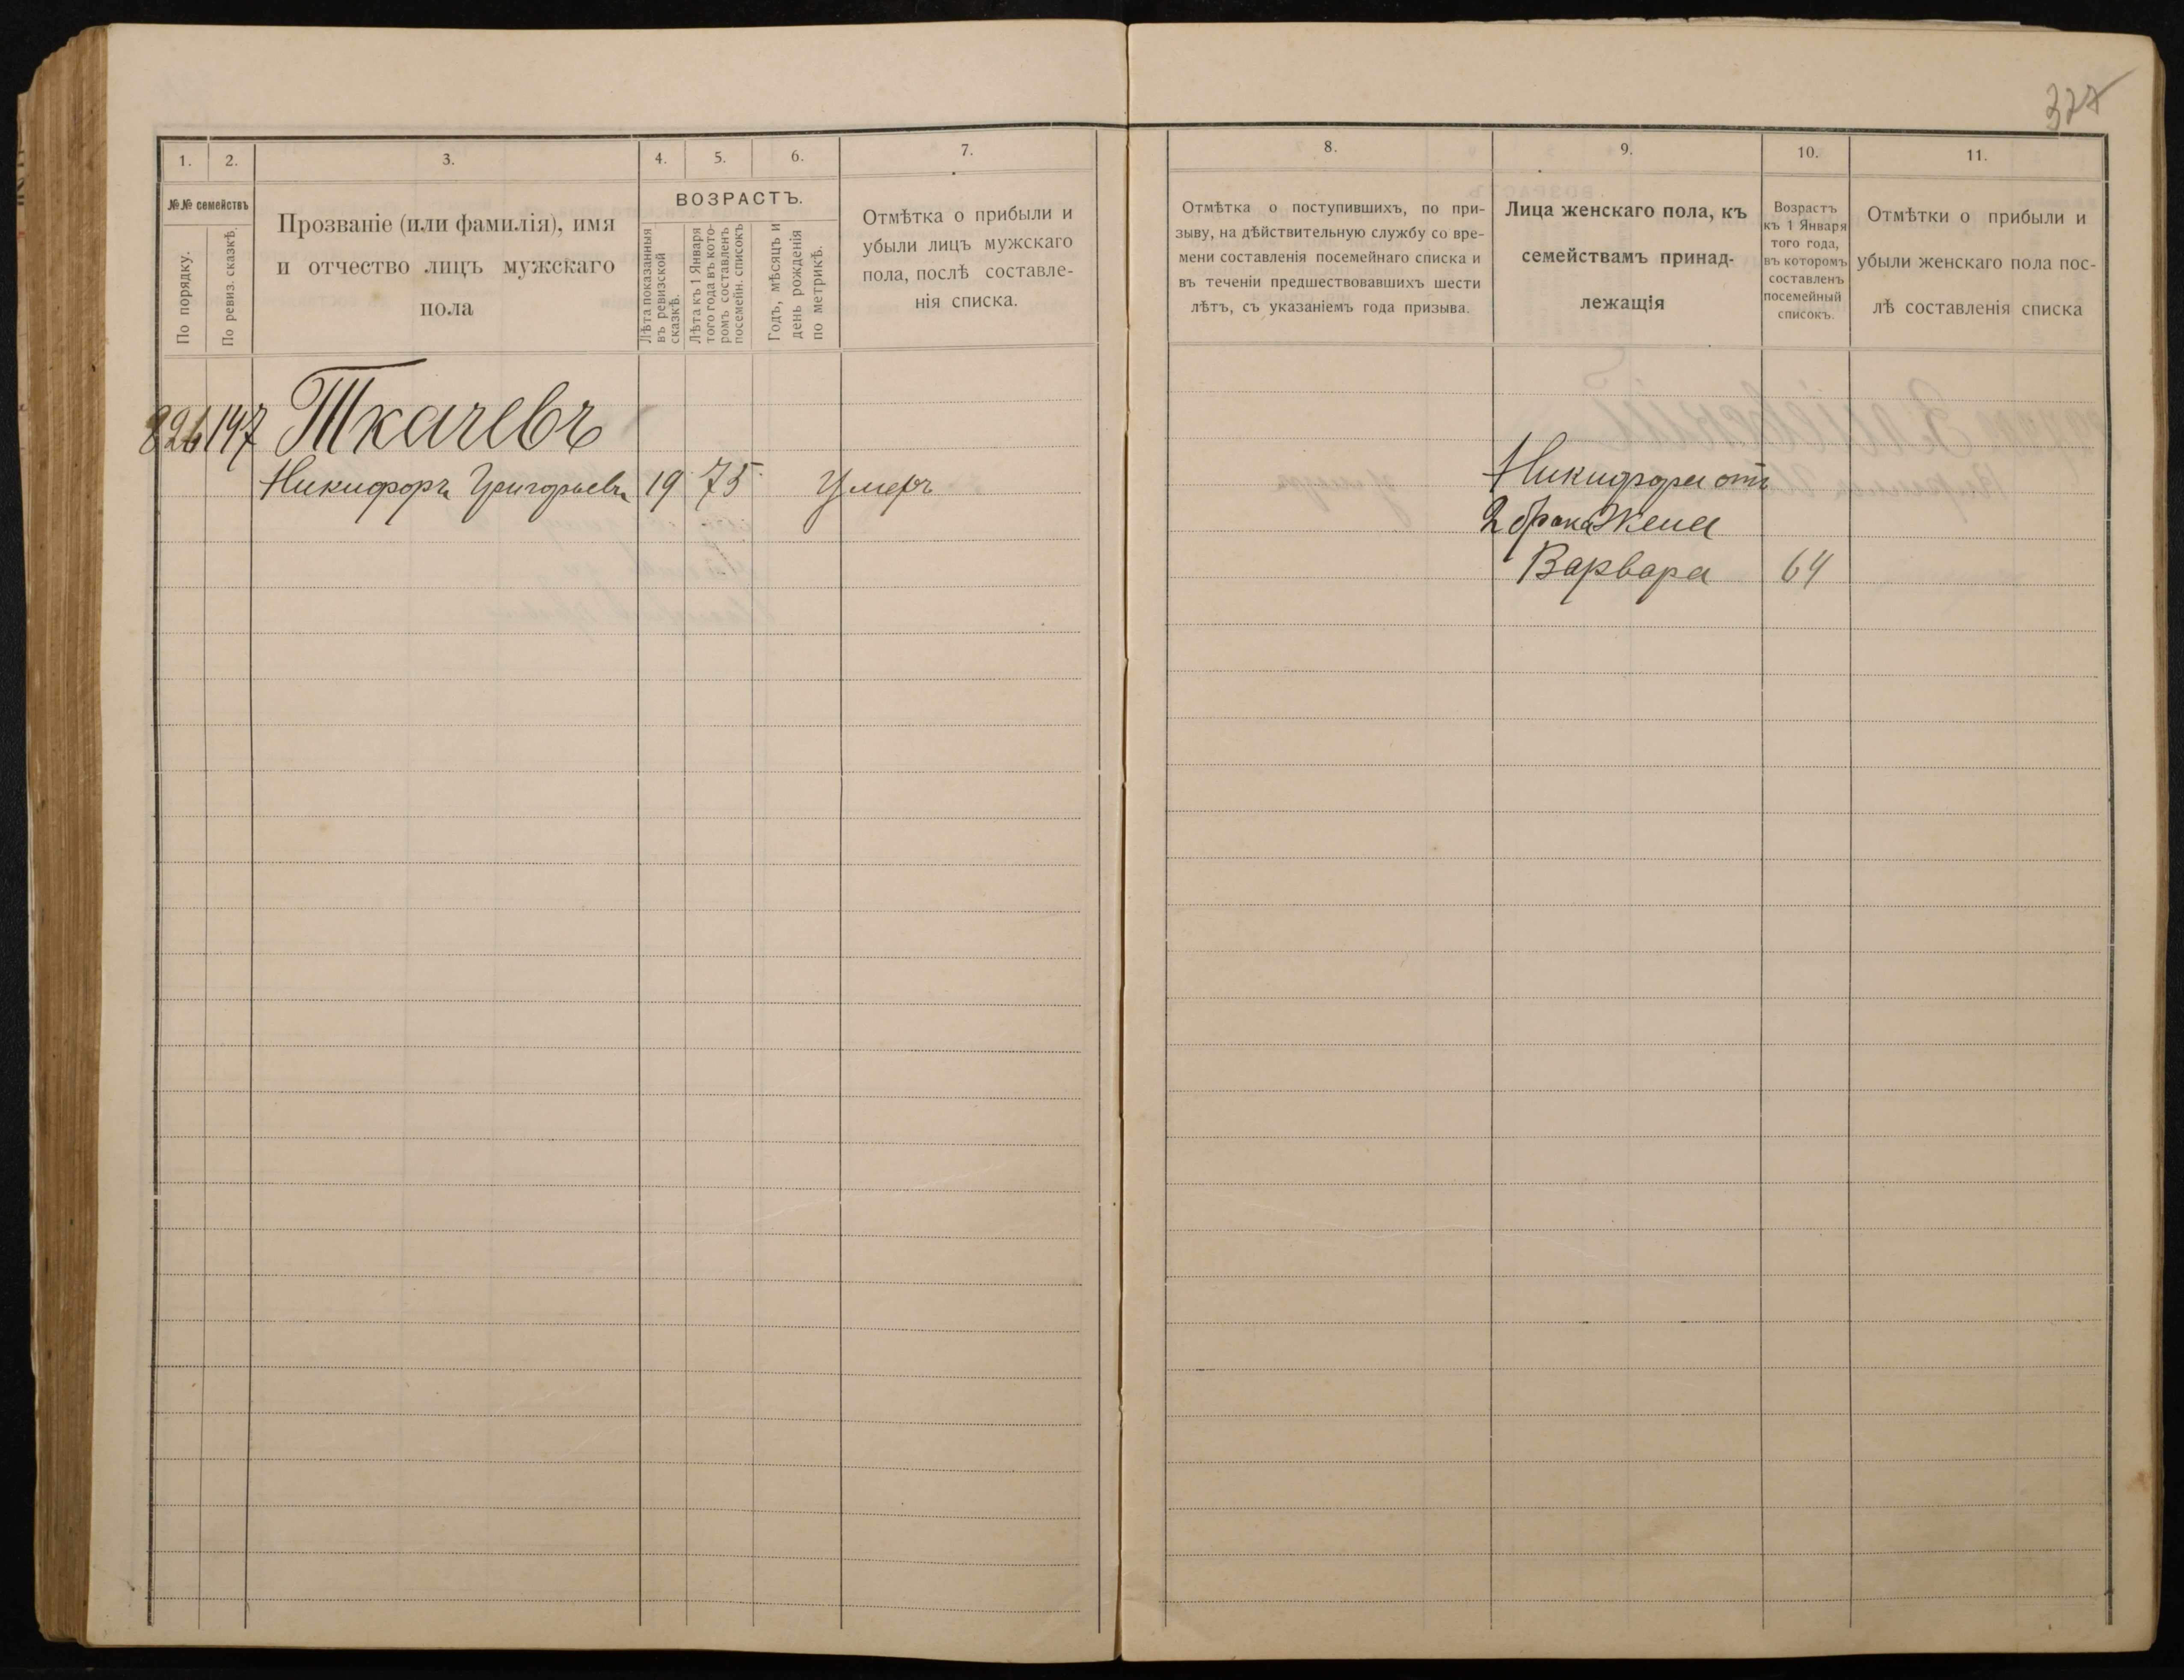 377
1. 2. 3. 4. 5. 6. 7.
№№ семействъ
По порядку.
По ревиз. сказкѣ.
Прозваніе (или фамилія), имя
и отчество лицъ мужскаго
пола
ВОЗРАСТЪ.
Лѣта показанныя
въ ревизской
сказкѣ.
Лѣта къ 1 Января
того года въ кото-
ромъ составленъ
посемейн. списокъ
Годъ, мѣсяцъ и
день рожденія
по метрикѣ.
Отмѣтка о прибыли и
убыли лицъ мужскаго
пола, послѣ составле-
нія списка.
826 147 Ткачевъ
Никифоръ Григорьевъ 19 75 Умеръ
8. 9. 10. 11.
Отмѣтка о поступившихъ, по при-
зыву, на дѣйствительную службу со вре-
мени составленія посемейнаго списка и
въ теченіи предшествовавшихъ шести
лѣтъ, съ указаніемъ года призыва.
Лица женскаго пола, къ
семействамъ принад-
лежащія
Возрастъ
къ 1 Января
того года,
въ которомъ
составленъ
посемейный
списокъ.
Отмѣтки о прибыли и
убыли женскаго пола пос-
лѣ составленія списка
Никифора отъ
2 брака Жена
Варвара 64